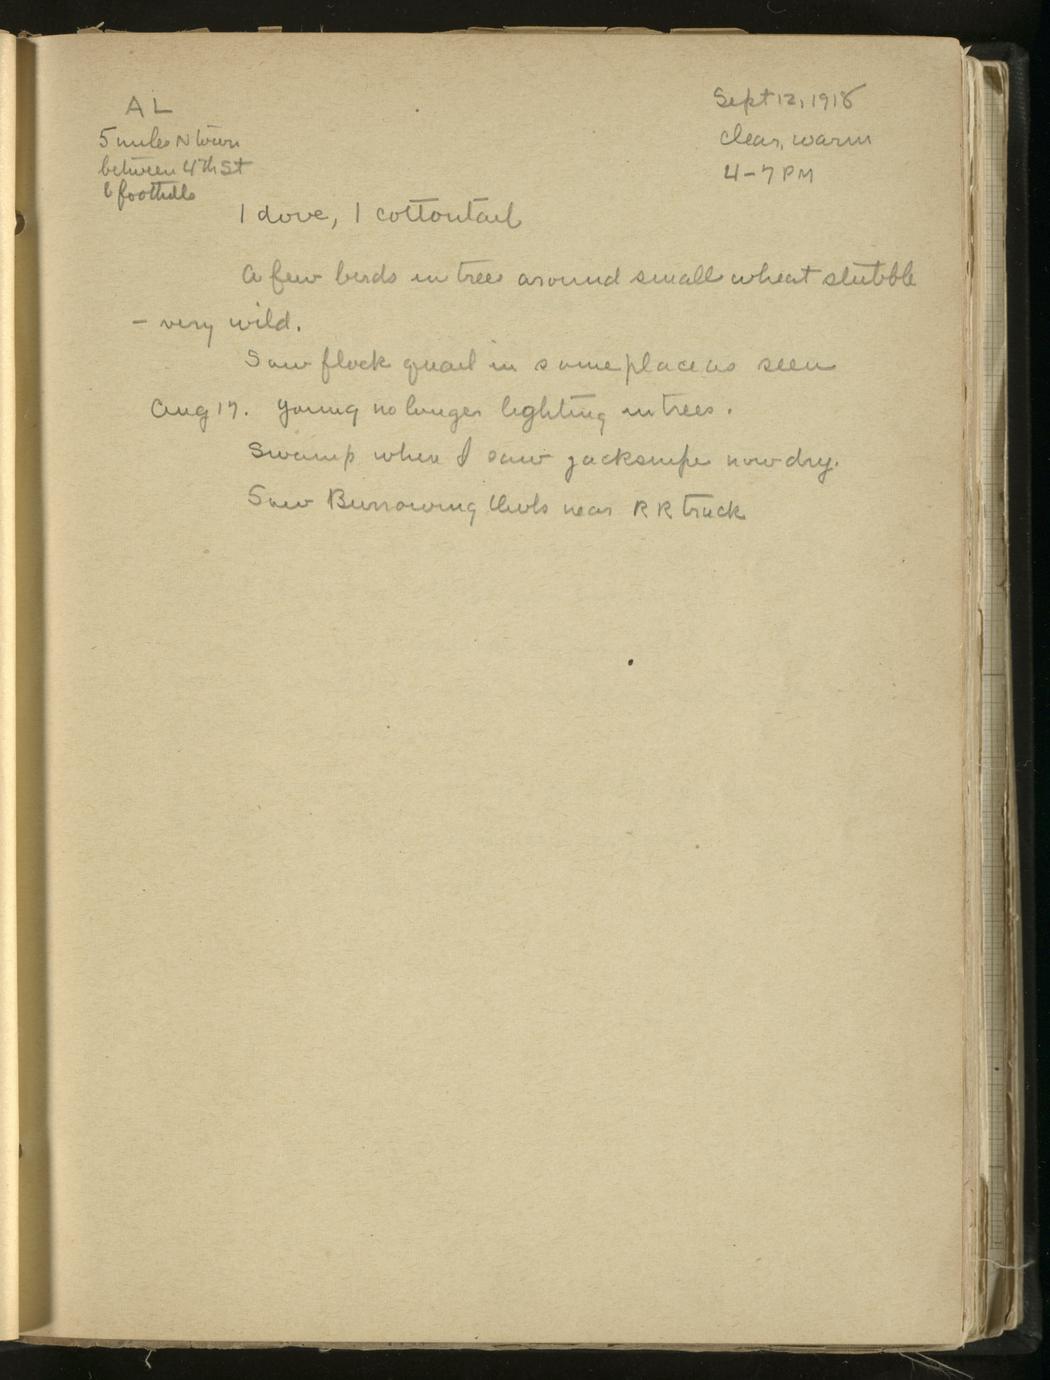 AL
5 miles N town
between 4th St
& foothills
Sept 12, 1918
clear, warm
4-7 PM
1 dove, 1 cottontail
A few birds in trees around small wheat stubble
- very wild.
Saw flock quail in same place as seen
Aug 17. Young no longer lighting in trees.
Swamp when I saw jacksnipe now dry.
Saw Burrowing Owls near RR track